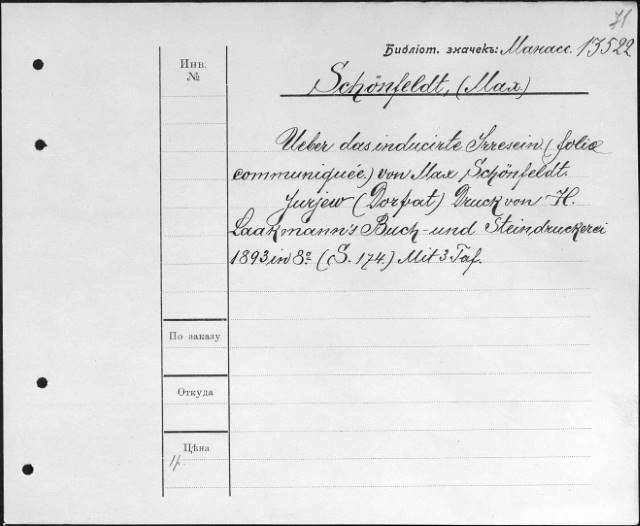 71
Библіот. значекъ: Манасс. 13522
Инв.
№
Schönfeldt, (Max.)
Ueber das inducirte Irresein. (folie
communiquée.) von Max Schönfeldt.
Jurjew (Dorpat) Druck von H.
Laakmann's Buch- und Steindruckerei
1893, in 8º (S. 174.) Mit 3 Taf.
По заказу
Откуда
Цѣна